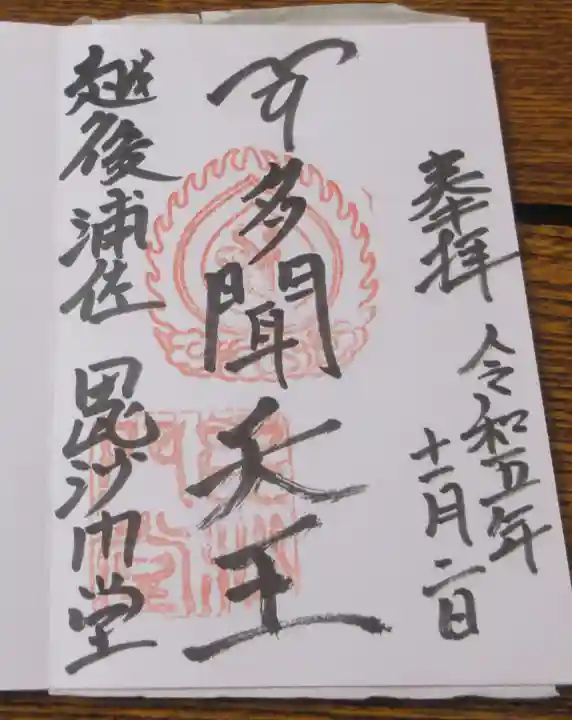 奉拝
令和五年
十一月二日
多聞天王
越後浦佐 毘沙門堂